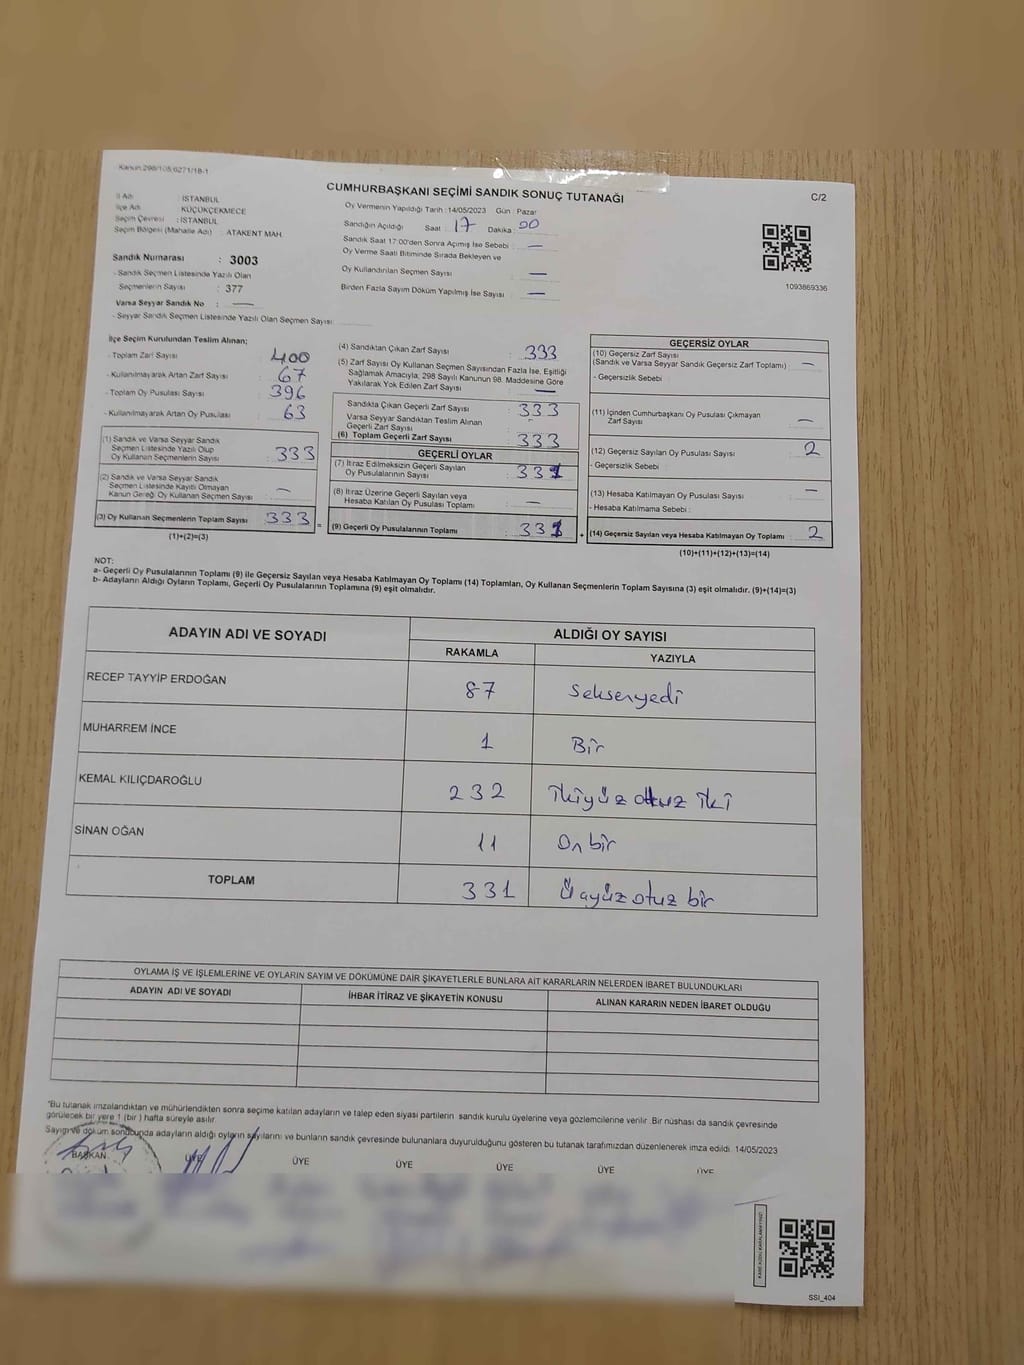 Kanun:298/105;6271/18-1
CUMHURBAŞKANI SEÇİMİ SANDIK SONUÇ TUTANAĞI
C/2
İl Adı : İSTANBUL
İlçe Adı : KÜÇÜKÇEKMECE
Seçim Çevresi : İSTANBUL
Seçim Bölgesi (Mahalle Adı) : ATAKENT MAH.
Sandık Numarası : 3003
- Sandık Seçmen Listesinde Yazılı Olan
Seçmenlerin Sayısı : 377
Varsa Seyyar Sandık No : —
- Seyyar Sandık Seçmen Listesinde Yazılı Olan Seçmen Sayısı
Oy Vermenin Yapıldığı Tarih :14/05/2023 Gün : Pazar
Sandığın Açıldığı Saat : 17 Dakika : 00
Sandık Saat 17:00'den Sonra Açımış İse Sebebi : —
Oy Verme Saati Bitiminde Sırada Bekleyen ve
Oy Kullandırılan Seçmen Sayısı : —
Birden Fazla Sayım Döküm Yapılmış İse Sayısı : —
1093869336
İlçe Seçim Kurulundan Teslim Alınan;
- Toplam Zarf Sayısı : 400
- Kullanılmayarak Artan Zarf Sayısı : 67
- Toplam Oy Pusulası Sayısı : 396
- Kullanılmayarak Artan Oy Pusulası : 63
(1) Sandık ve Varsa Seyyar Sandık
Seçmen Listesinde Yazılı Olup
Oy Kullanan Seçmenlerin Sayısı : 333
(2) Sandık ve Varsa Seyyar Sandık
Seçmen Listesinde Kayıtlı Olmayan
Kanun Gereği Oy Kullanan Seçmen Sayısı : —
(3) Oy Kullanan Seçmenlerin Toplam Sayısı : 333 =
(1)+(2)=(3)
(4) Sandıktan Çıkan Zarf Sayısı : 333
(5) Zarf Sayısı Oy Kullanan Seçmen Sayısından Fazla İse, Eşitliği
Sağlamak Amacıyla, 298 Sayılı Kanunun 98. Maddesine Göre
Yakılarak Yok Edilen Zarf Sayısı : —
Sandıkta Çıkan Geçerli Zarf Sayısı : 333
Varsa Seyyar Sandıktan Teslim Alınan
Geçerli Zarf Sayısı : -
(6) Toplam Geçerli Zarf Sayısı : 333
GEÇERLİ OYLAR
(7) İtiraz Edilmeksizin Geçerli Sayılan
Oy Pusulalarının Sayısı : 331
(8) İtiraz Üzerine Geçerli Sayılan veya
Hesaba Katılan Oy Pusulası Toplamı : —
(9) Geçerli Oy Pusulalarının Toplamı : 331 +
GEÇERSİZ OYLAR
(10) Geçersiz Zarf Sayısı
(Sandık ve Varsa Seyyar Sandık Geçersiz Zarf Toplamı) : —
- Geçersizlik Sebebi :
(11) İçinden Cumhurbaşkanı Oy Pusulası Çıkmayan
Zarf Sayısı : —
(12) Geçersiz Sayılan Oy Pusulası Sayısı : 2
- Geçersizlik Sebebi :
(13) Hesaba Katılmayan Oy Pusulası Sayısı : —
- Hesaba Katılmama Sebebi :
(14) Geçersiz Sayılan veya Hesaba Katılmayan Oy Toplamı : 2
(10)+(11)+(12)+(13)=(14)
NOT:
a- Geçerli Oy Pusulalarının Toplamı (9) ile Geçersiz Sayılan veya Hesaba Katılmayan Oy Toplamı (14) Toplamları, Oy Kullanan Seçmenlerin Toplam Sayısına (3) eşit olmalıdır. (9)+(14)=(3)
b- Adayların Aldığı Oyların Toplamı, Geçerli Oy Pusulalarının Toplamına (9) eşit olmalıdır.
ADAYIN ADI VE SOYADI ALDIĞI OY SAYISI
RAKAMLA YAZIYLA
RECEP TAYYİP ERDOĞAN 87 Seksenyedi
MUHARREM İNCE 1 Bir
KEMAL KILIÇDAROĞLU 232 İkiyüz otuz iki
SİNAN OĞAN 11 On bir
TOPLAM 331 Üçyüz otuz bir
OYLAMA İŞ VE İŞLEMLERİNE VE OYLARIN SAYIM VE DÖKÜMÜNE DAİR ŞİKAYETLERLE BUNLARA AİT KARARLARIN NELERDEN İBARET BULUNDUKLARI
ADAYIN ADI VE SOYADI İHBAR İTİRAZ VE ŞİKAYETİN KONUSU ALINAN KARARIN NEDEN İBARET OLDUĞU
"Bu tutanak imzalandıktan ve mühürlendikten sonra seçime katılan adayların ve talep eden siyasi partilerin sandık kurulu üyelerine veya gözlemcilerine verilir. Bir nüshası da sandık çevresinde
görülecek bir yere 1 (bir) hafta süreyle asılır.
Sayım ve döküm sonucunda adayların aldığı oyların sayılarını ve bunların sandık çevresinde bulunanlara duyurulduğunu gösteren bu tutanak tarafımızdan düzenlenerek imza edildi. 14/05/2023
BAŞKAN ÜYE ÜYE ÜYE ÜYE ÜYE ÜYE
SSI_404